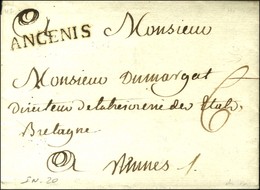 ANCENIS Monsieur
Monsieur Dumargat
Directeur de la tresorerie des Etats
Bretagne
a Rennes